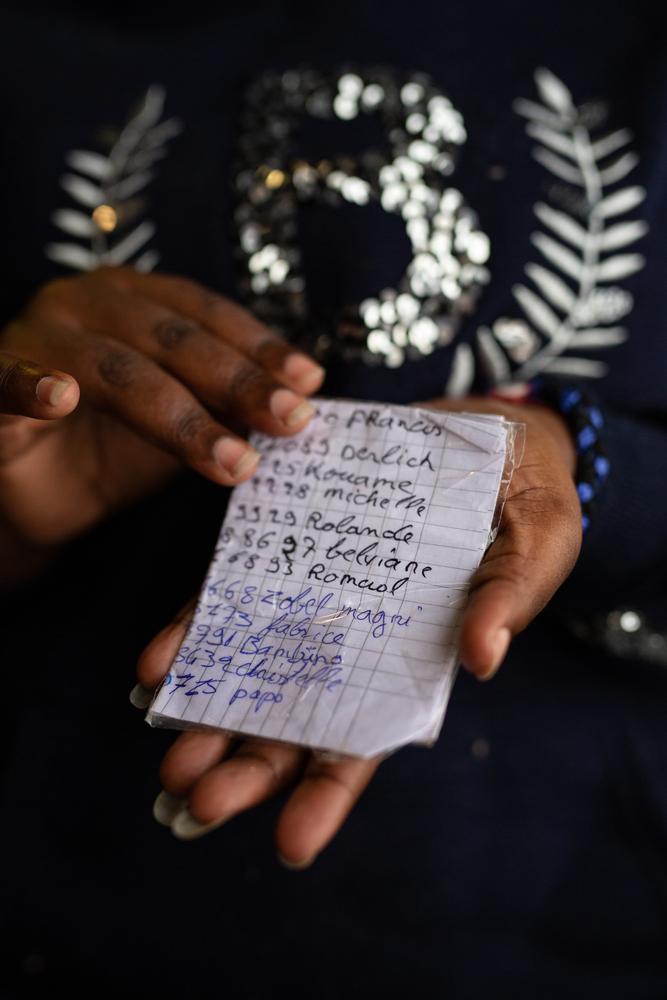 B
Francis
089 Derlich
25 Kouame
2228 michelle
3929 Rolande
8697 belviane
6893 Romaol
668 Zobel magri"
5773 fabrice
5791 Bambino
3639 christelle
0725 papo